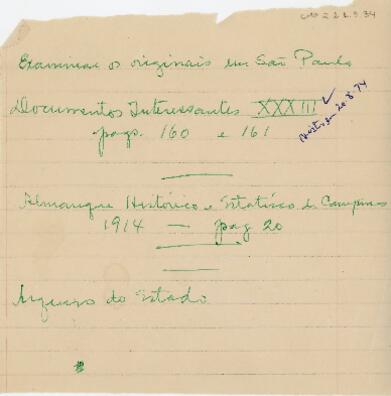 Examinar os originais em São Paulo
Documentos Interessantes XXXIII
pags. 160 e 161
20-8-74
Almanaque Histórico e Estatístico de Campinas
1914 — pag 20
Arquivo do Estado